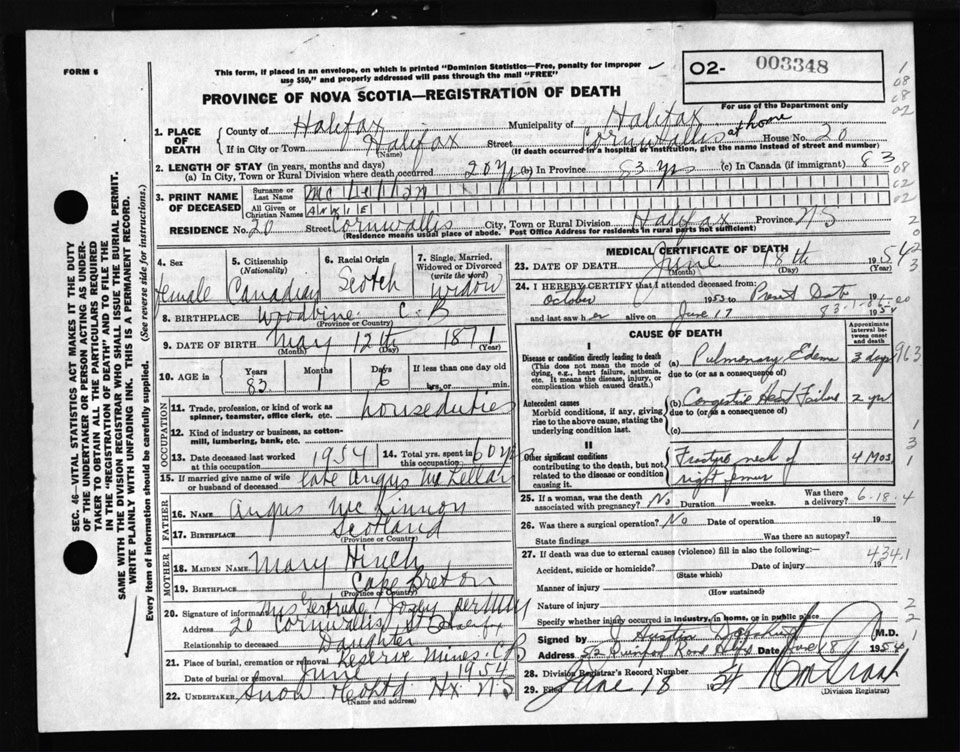 FORM 6
This form, if placed in an envelope, on which is printed "Dominion Statistics—Free, penalty for improper
use $50," and properly addressed will pass through the mail "FREE"
O2- 003348
For use of the Department only
PROVINCE OF NOVA SCOTIA—REGISTRATION OF DEATH
1. PLACE OF DEATH
County of Halifax Municipality of Halifax
If in City or Town Halifax Street Cornwallis at home House No. 20
(Name) (If death occurred in a hospital or institution, give the name instead of street and number)
2. LENGTH OF STAY (in years, months and days)
(a) In City, Town or Rural Division where death occurred 20 yr (b) In Province 83 yrs (c) In Canada (if immigrant) 83
3. PRINT NAME OF DECEASED
Surname or Last Name McLellan
All Given or Christian Names ANNIE
RESIDENCE No. 20 Street Cornwallis City, Town or Rural Division Halifax Province N S
(Residence means usual place of abode. Post Office Address for residents in rural parts not sufficient)
4. Sex
female
5. Citizenship
(Nationality)
Canadian
6. Racial Origin
Scotch
7. Single, Married,
Widowed or Divorced
(write the word)
Widow
8. BIRTHPLACE Woodbine C. B
(Province or Country)
9. DATE OF BIRTH May 12th 1871
(Month) (Day) (Year)
10. AGE in
Years Months Days If less than one day old
83 1 6 hrs. or min.
OCCUPATION
11. Trade, profession, or kind of work as
spinner, teamster, office clerk, etc. house duties
12. Kind of industry or business, as cotton-
mill, lumbering, bank, etc.
13. Date deceased last worked
at this occupation 1954
14. Total yrs. spent in
this occupation 60 yr
15. If married give name of wife
or husband of deceased late Angus McLellan
FATHER
16. NAME Angus McKinnon
17. BIRTHPLACE Scotland
(Province or Country)
MOTHER
18. MAIDEN NAME Mary Hinch
19. BIRTHPLACE Cape Breton
(Province or Country)
20. Signature of informant Mrs Gertrude per
Address 20 Cornwallis St Halifax
Relationship to deceased Daughter
21. Place of burial, cremation or removal Reserve Mines C B
Date of burial or removal June 1954
22. UNDERTAKER Snow & Co Ltd Hx N S
(Name and address)
MEDICAL CERTIFICATE OF DEATH
23. DATE OF DEATH June 18th 1954
(Month) (Day) (Year)
24. I HEREBY CERTIFY that I attended deceased from:
October 1953 to Present Date 19
and last saw her alive on June 17 1954
CAUSE OF DEATH
Approximate
interval between
onset and
death
I
Disease or condition directly leading to death
(This does not mean the mode of
dying, e.g., heart failure, asthenia,
etc. It means the disease, injury, or
complication which caused death.)
(a) Pulmonary Edema 3 days
due to (or as a consequence of)
Antecedent causes
Morbid conditions, if any, giving
rise to the above cause, stating the
underlying condition last.
(b) Congestive Heart Failure 2 yr
due to (or as a consequence of)
(c)
II
Other significant conditions
contributing to the death, but not
related to the disease or condition
causing it.
Fracture neck of
right femur 4 Mos.
25. If a woman, was the death
associated with pregnancy? No Duration weeks. Was there a delivery? 6-18-4
26. Was there a surgical operation? No Date of operation 19
State findings Was there an autopsy?
27. If death was due to external causes (violence) fill in also the following:—
434.1
Accident, suicide or homicide? Date of injury 19
(State which)
Manner of injury
(How sustained)
Nature of injury
Specify whether injury occurred in industry, in home, or in public place
Signed by M.D.
Address Road Hfx Date June 18 1954
28. Division Registrar's Record Number
29. Filed June 18 54
(Division Registrar)
SEC. 46—VITAL STATISTICS ACT MAKES IT THE DUTY
OF THE UNDERTAKER OR PERSON ACTING AS UNDER-
TAKER TO OBTAIN ALL THE PARTICULARS REQUIRED
IN THE "REGISTRATION OF DEATH" AND TO FILE THE
SAME WITH THE DIVISION REGISTRAR WHO SHALL ISSUE THE BURIAL PERMIT.
WRITE PLAINLY WITH UNFADING INK. THIS IS A PERMANENT RECORD.
Every item of information should be carefully supplied. (See reverse side for instructions.)